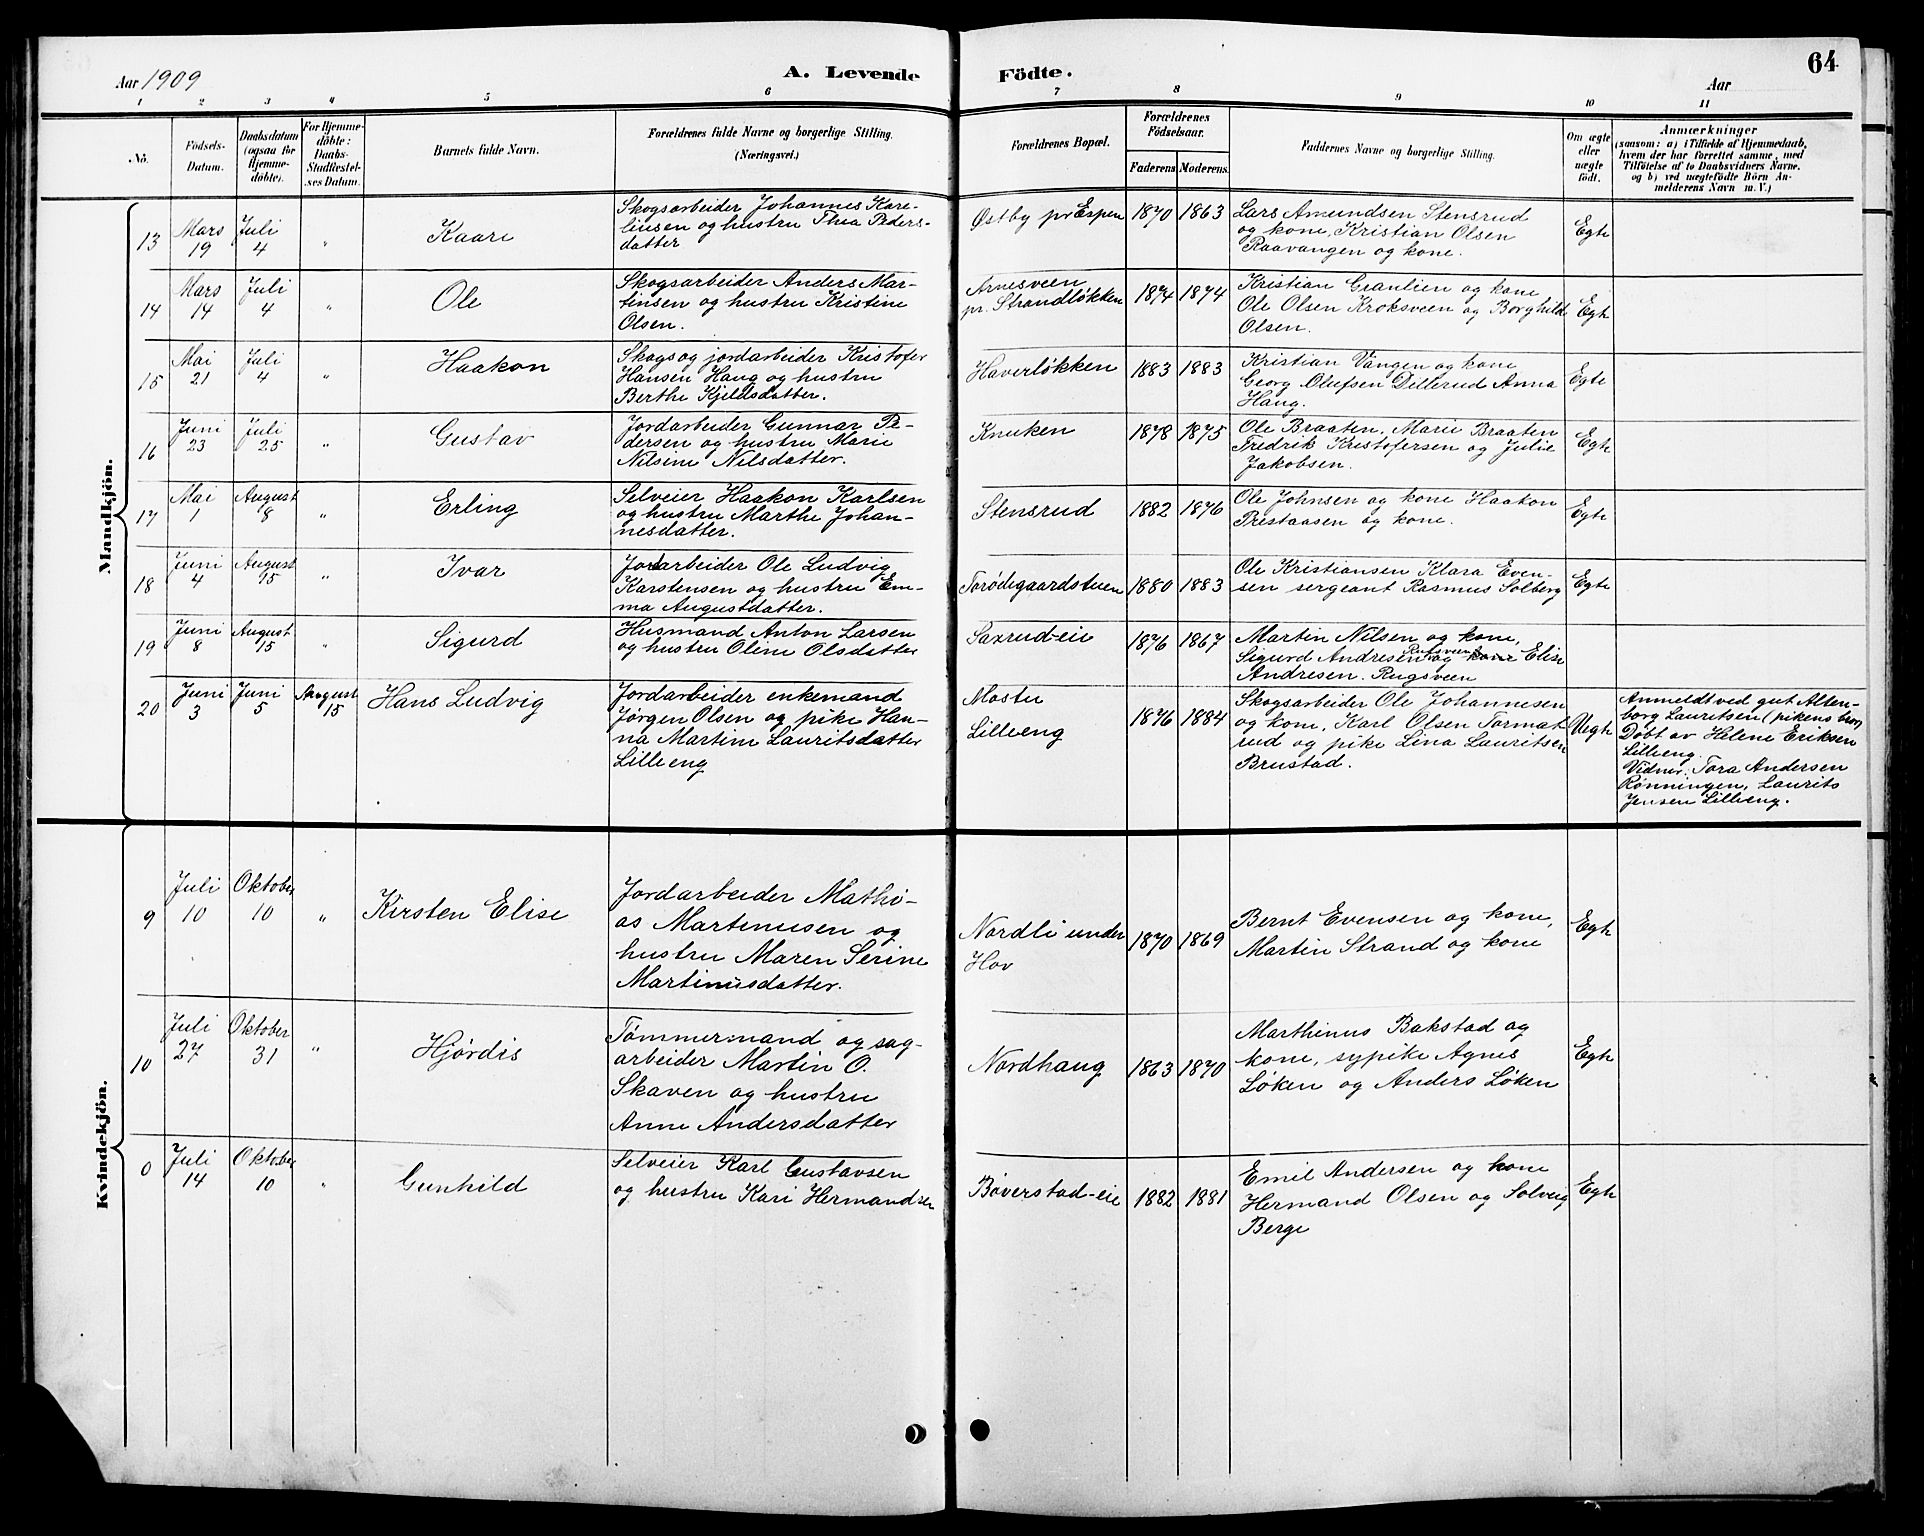 Aar 1909
A. Levende Födte.
Aar
64
1 2 3 4 5 6 7 8 9 10 11
No.
Födsels-Datum.
Daabsdatum (ogsaa for Hjemme-döbte).
For Hjemme-döbte: Daabs-Stadfæstel-ses Datum.
Barnets fulde Navn.
Forældrenes fulde Navne og borgerlige Stilling. (Næringsvei.)
Forældrenes Bopæl.
Forældrenes Födselsaar.
Faderens Moderens.
Faddernes Navne og borgerlige Stilling.
Om ægte eller uægte födt.
Anmærkninger
(saasom: a) i Tilfælde af Hjemmedaab,
hvem der har forrettet samme, med
Tilföielse af to Daabsvidners Navne.
og b) ved uægtefödte Börn An-
melderens Navn m. V.)
Mandkjön.
13 Mars 19 Juli 4 " Kaare
Skogsarbeider Johannes Kare-
liusen og hustru Thea Peders-
datter
Østby pr Espen 1870 1863
Lars Amundsen Stensrud
og kone, Kristian Olsen
Raavangen og kone.
Egte
14 Mars 14 Juli 4 " Ole
Skogsarbeider Anders Mar-
tinsen og hustru Kristine
Olsen.
Arnesveen
pr. Strandløkken 1874 1874
Kristian Granlien og kone
Ole Olsen Kroksveen og Borghild
Olsen.
Egte
15 Mai 21 Juli 4 " Haakon
Skogs og jordarbeider Kristofer
Hansen Haug og hustru
Berthe Kjeldsdatter.
Haverløkken 1883 1883
Kristian Vangen og kone
Georg Olufsen Dillerud Anna
Haug.
Egte
16 Juni 23 Juli 25 " Gustav
Jordarbeider Gunnar Pe-
dersen og hustru Marie
Nilsine Nilsdatter.
Knuken 1878 1875
Ole Braaten, Marie Braaten
Fredrik Kristofersen og Julie
Jakobsen.
Egte
17 Mai 1 August 8 " Erling
Selveier Haakon Karlsen
og hustru Marthe Johan-
nesdatter.
Stensrud 1882 1876
Ole Johnsen og kone Haakon
Prestaasen og kone.
Egte
18 Juni 4 August 15 " Ivar
Jordarbeider Ole Ludvig
Karstensen og hustru Em-
ma Augustdatter.
Torødegaardstuen 1880 1883
Ole Kristiansen Klara Even-
sen sergeant Rasmus Solberg
Egte
19 Juni 8 August 15 " Sigurd
Husmand Anton Larsen
og hustru Oline Olsdatter
Saxrud-eie 1876 1867
Martin Nilsen og kone,
Sigurd Andresen Rugsveen og kone Elise
Andresen. Rugsveen
20 Juni 3 Juni 5 August 15 Hans Ludvig
Jordarbeider enkemand
Jørgen Olsen og pike Han-
na Martine Lauritsdatter
Lilleeng
Mostu
Lilleeng 1876 1884
Skogsarbeider Ole Johannesen
og kone, Karl Olsen Tormat
rud og pike Lina Lauritsen
Brustad.
Uegte
Anmeldt ved gut Alten-
borg Lauritsen (pikens bror)
Døbt av Helene Eriksen
Lilleeng
Vidner: Tora Andersen
Rønningen, Laurits
Jensen Lilleeng.
Kvindekjön.
9 Juli 10 Oktober 10 " Kirsten Elise
Jordarbeider Mathi-
as Martinusen og
hustru Maren Serine
Martinusdatter.
Nordli under
Hov 1870 1869
Bernt Evensen og kone,
Martin Strand og kone
Egte
10 Juli 27 Oktober 31 " Hjørdis
Tømmermand og sag-
arbeider Martin O.
Skaven og hustru
Anne Andersdatter
Nordhaug 1863 1870
Marthinus Bakstad og
kone, sypike Agnes
Løken og Anders Løken
Egte
0 Juli 14 Oktober 10 " Gunhild
Selveier Karl Gustavsen
og hustru Kari Hermandsen
Bøverstad-eie 1882 1881
Emil Andersen og kone
Hermand Olsen og Solveig
Berge
Egte